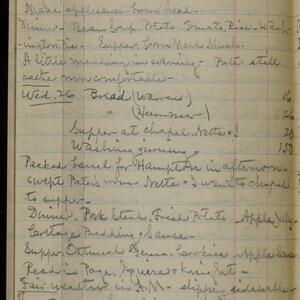 Made applesauce - brown bread -
Dinner - Bean Soup - Potato. Tomato, Rice -
Supper Corn Meal Mush.
A little mending in evening - Pats still
rather uncomfortable -
Wed. 26 Bread (Warren) 16
" 26
Supper at chapel. Netta & I 20
Washing & ironing. 150
Packed barrel for Hampton in afternoon -
swept Pats's room - Netta & I went to chapel
to supper -
Dinner. Pork Steak, Fried Potato - Apple Jelly -
Cottage Pudding & Sauce -
Supper Oatmeal Gems - Cookies - Apple Sauce
Read in Page, Squire &
Fair weather in A.M. - slippery sidewalks -